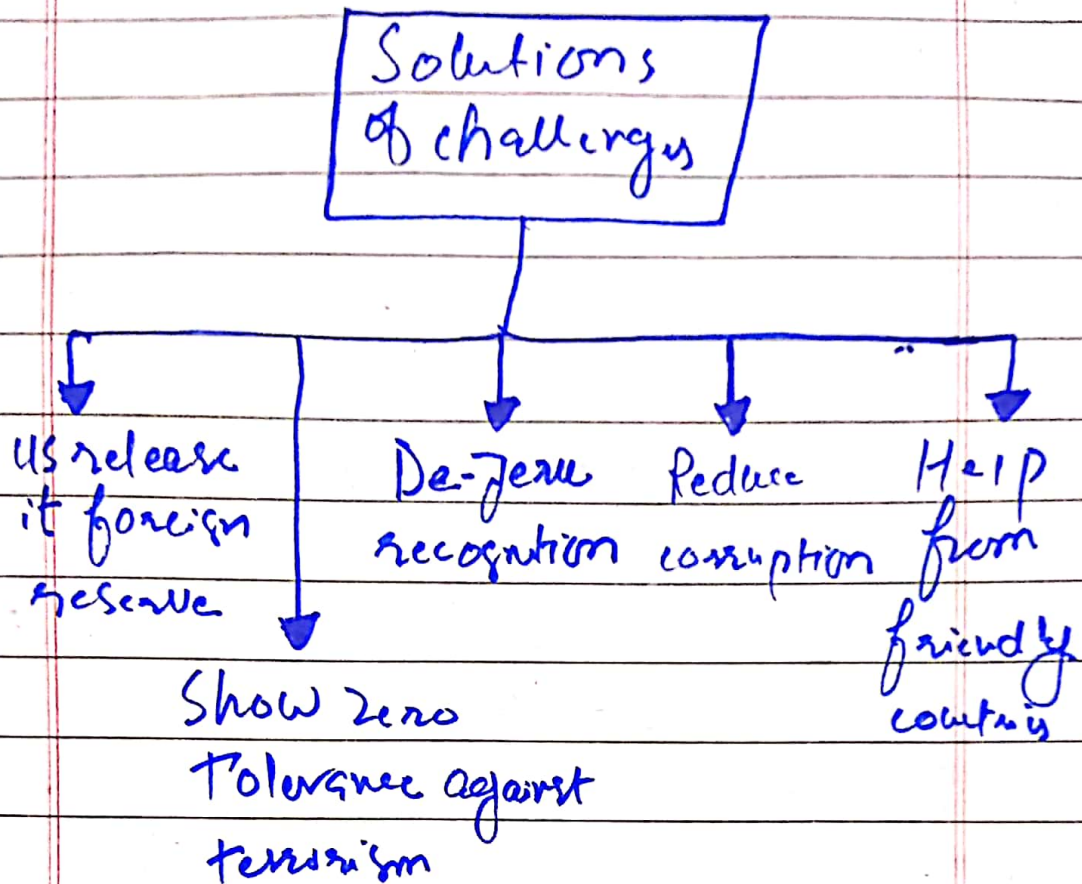 Solutions
of challenges
US release
it foreign
reserve
Show zero
Tolerance against
terrorism
De-Jeru
recognition
Reduce
corruption
Help
from
friendly
countris